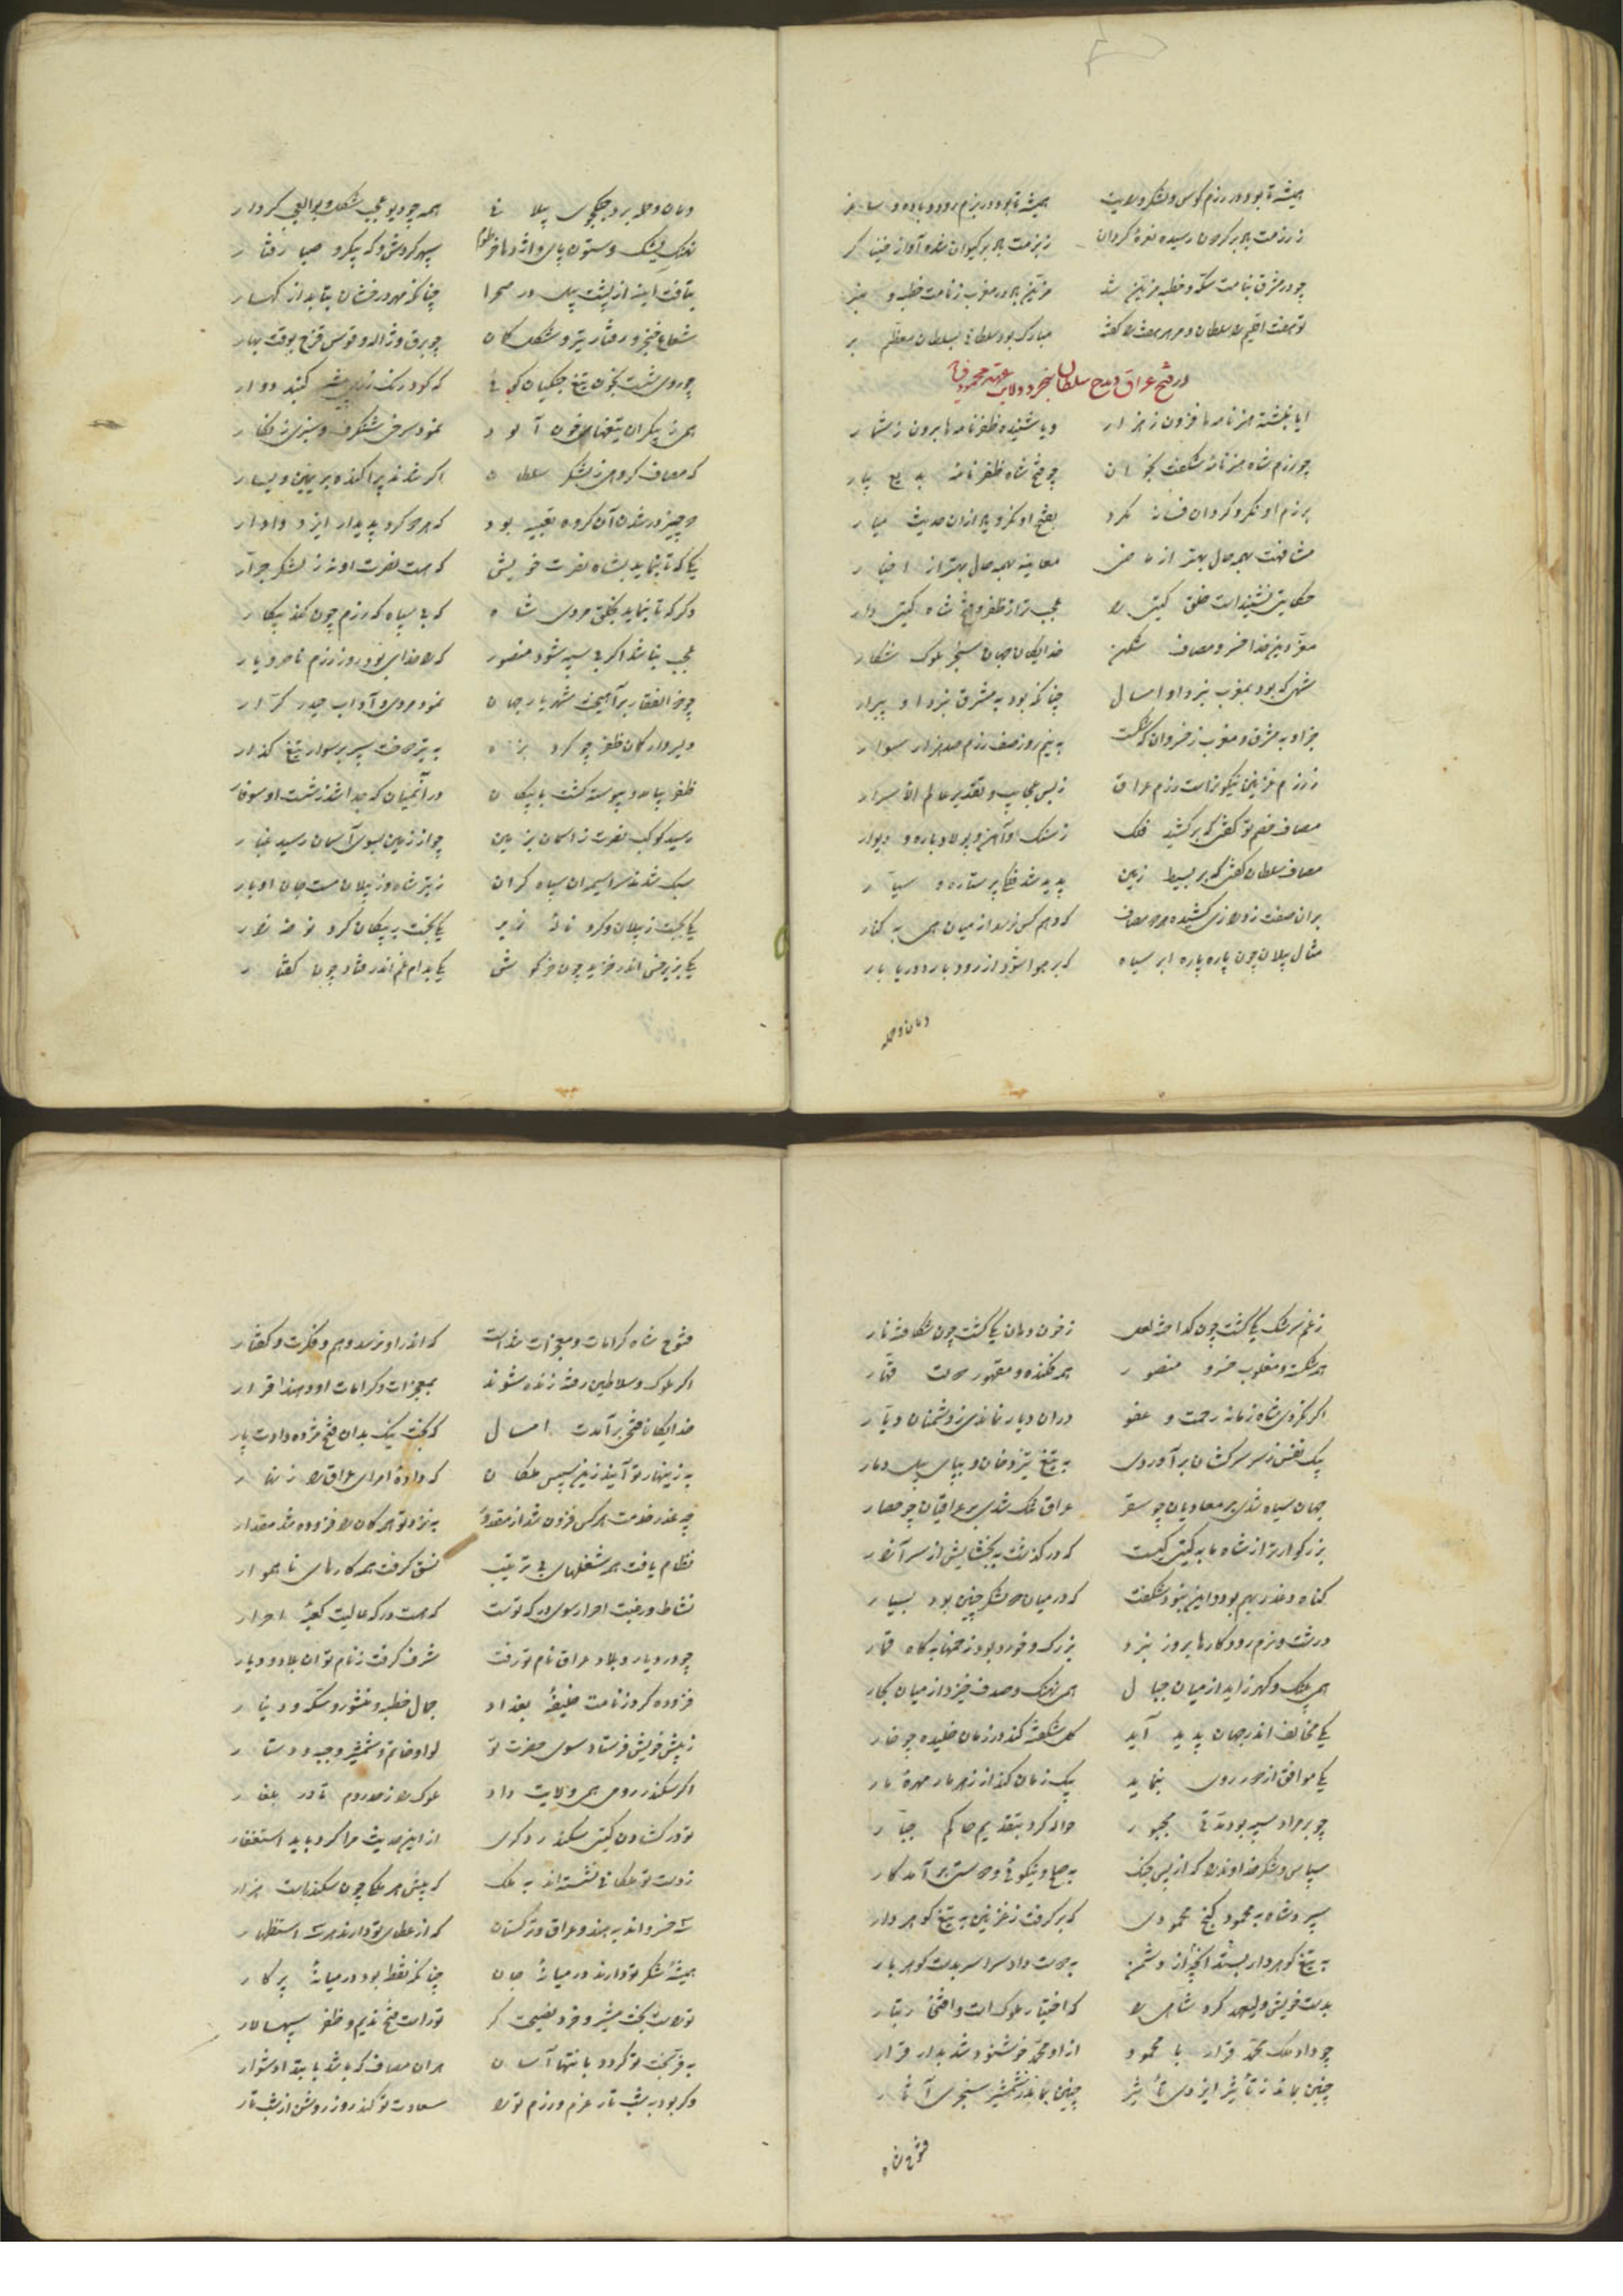 همیشه تا بود در رزم کوس و لشکر و رایت همیشه تا بود در بزم رود و باده و ساغر
ز رزمت باد بر گردون رسیده نعره گردان ز بزمت باد بر کیوان شده آواز خنیاگر
چو در مشرق بنامت سکه و خطبه مزین شد مزین باد در مغرب ز نامت خطبه و منبر
مبارک بود سلطانی بسلطان معظم بر
در فتح عراق و مدح سلطان سنجر
ایا نبشته هنرنامها فزون ز هزار و یا شنیده ظفرنامها برون ز شمار
چو رزم شاه هنرنامه شگفت بخوان چو فتح شاه ظفرنامه بدیع بیار
برزم او نگر و گرد آن فسانه مگرد بفتح او نگر و یاد از آن حدیث میار
مشافهت بهمه حال بهتر از معاینه بهمه حال بهتر از اخبار
حکایتی نشنیدست خلق گیتی را عجب تر از ظفر و فتح شاه گیتی دار
معز دین خدا خسرو مصاف شکن خدایگان جهان سنجر ملوک شکار
شهی که بود بمغرب نبرد او امسال چنانکه بود به مشرق نبرد او پیرار
جز او به مشرق و مغرب ز خسروان که شکست به نیم روز صف رزم صد هزار سوار
ز رزم غزنین نیکوترست رزم عراق ز بس عجایب و تقدیر عالم الاسرار
مصاف خصم تو گفتی که برکشید فلک ز سنگ و آهن و پولاد باره و دیوار
مصاف سلطان گفتی که بر بسیط زمین پدید شد فلکی پر ستاره و سیار
بر آن صفت زده زی کشیده مصاف که وهم کس نرسد از میان همی به کنار
مثال پیلان چون پاره پاره ابر سیاه که بر هوا شود از رود بار و دریا بار
دمان و حمله
دمان و حمله بر و جنگجوی پیلانی همه چو دیو عجب شکل و بوالعجب کردار
نهنگ یشک و ستون پای و اژدها خرطوم سپهر گردش و که پیکر و صبا رفتار
بتافت آینه از پشت پیل در صحرا چنانکه مهر درخشان بتابد از کهسار
شعاع خنجر و رفتار تیر و شکل کمان چو برق و ژاله و قوس قزح بوقت بهار
چو روی شست بخون تیغ جنگیان گنبد دوار
همی ز پیکر آن تیغهای خون آلود نمود سرخی شنگرف و سبزی زنگار
که مصاف گروهی ز لشکر سلطان اگر شدند پراکنده بر یمین و یسار
چه چیز در شدن آن گروه تعبیه بود که هر چه کرد پدیدار ایزد دادار
یکی که تا بنماید بشاه نصرت خویش که هست نصرت او نه ز لشکر جرار
دگر که تا بنماید بخلق مردی شاه که بی سپاه که رزم چون کند پیکار
عجب نباشد اگر بی سپه شود منصور که را خدای بود روز رزم ناصر و یار
چو ذوالفقار برآهیخت شهریار جهان نمود مردی و آداب حیدر کرار
دلیروار کمان ظفر چو کرد بزه به تیر جفت سپر بر سوار تیغ گذار
ظفر بیامد و پیوسته گشت با پیکان در آن میان که جدا شد ز شست او سوفار
رسید کوکب نصرت ز آسمان بزمین چو از زمین بسوی آسمان رسید غبار
سبک شدند سراسیمه آن سپاه گران ز تیر شاه و ز پیلان مست جان اوبار
یکی بجست ز پیلان و کرد ناله زیر یکی بخست به پیکان و کرد نوحه زار
یکی بزیر خس اندر خزید چون خرگوش یکی بدام غم اندر فتاد چون کفتار
ز غم سرشک یکی گشت چون گداخته لعل ز خون دهان یکی گشت چون شکافته نار
همه شکسته و مغلوب خسرو منصور همه فکنده و مقهور دولت قهار
اگر نکردی شاه زمانه رحمت و عفو در آن دیار نماندی ز دشمنان دیار
بیک نفس ز سر سرکشان برآوردی به تیغ تیز و بپای پیل دمار
جهان سیاه شدی بر معادیان چو سقر عراق تنگ شدی بر عراقیان چو حصار
بزرگوارتر از شاه ما به گیتی کیست که در گذشت به بخشایش از سر آزار
گناه و عذر بهم بود و این نبود شگفت که در میان دو لشکر چنین بود بسیار
درشت و نرم رود کارها بروز نبرد بزرگ و خورد بود زخمها به گاه قمار
همی پلنگ و گهر زاید از میان جبال همی نهنگ و صدف خیزد از میان بحار
یکی مخالف اندر جهان پدید آید گل شکفته کند در زمان خلیده چو خار
یکی موافق از دور روی بنماید بیک زمان کند از زهر مار مهره مار
چو بر مراد سپه بود مدتی مجبور جبار
سپاس و شکر خداوند را که از پس جنگ به صلح و نیکوئی و دوستی برآمد کار
سپرد شاه به محمود گنج محمودی که بر گرفت ز غزنین به تیغ گوهردار
به تیغ گوهردار بستد آنچ از دشمن به دوست داد سراسر بدست گوهربار
بدست خویش ولیعهد کرد شاهی را که اختیار ملوک است و افتخار تبار
چو داد ملک محمد قرار با محمود از او محمد خوشنود شد بدار قرار
چنین بماند ز تأثیر ایزدی تأثیر چنین بماند ز شمشیر سنجری آثار
فتوح شاه
فتوح شاه کرامات و معجزات شدست که اندر او نرسد وهم و فکرت و گفتار
اگر ملوک و سلاطین رفته زنده شوند بمعجزات و کرامات او دهند اقرار
خدایگانا فتحی برآمدت امسال که بخت نیک بدان فتح مژده دادت پار
به زینهار تو آیند زین سپس ملکان که داده‌ای امرای عراق را زنهار
چو عذر خدمت هر کس فزون شد از مقدور به نزد تو همگان را فزوده شد مقدار
نظام یافت همه شغلهای بی ترتیب نسق گرفت همه کارهای ناهموار
نشاط و رغبت احرار سوی درگه تست که هست درگه عالیت کعبه احرار
چو در دیار و بلاد عراق نام تو رفت شرف گرفت ز نام تو آن بلاد و دیار
فزوده کرد ز نامت خلیفه بغداد جمال خطبه و منشور و سکه و دینار
ز پیش خویش فرستاد سوی حضرت تو لوا و خاتم و شمشیر و جبه و دستار
اگر سکندر رومی همی ولایت داد ملوک را ز حد روم تا در بلغار
تو در گشادن گیتی سکندر دگری از این حدیث مرا کرد باید استغفار
ز دست تو ملکانی نشسته‌اند به ملک که پیش هر ملکی چون سکندرست هزار
سه خسرواند به هند و عراق و ترکستان که از عطای تو دارند هر سه استظهار
همیشه شکر تو دارند در میانه جان چنانکه نقطه بود در میانه پرگار
تو راست بخت مبشر و خرد نصیحت گر تو راست فتح ندیم و ظفر سپهسالار
به فر بخت تو گردد بانتها آسان هر آن مصاف که باشد بابتدا دشوار
وگر بود به شب تار عزم و رزم تو را سعادت تو کند روز روشن از شب تار